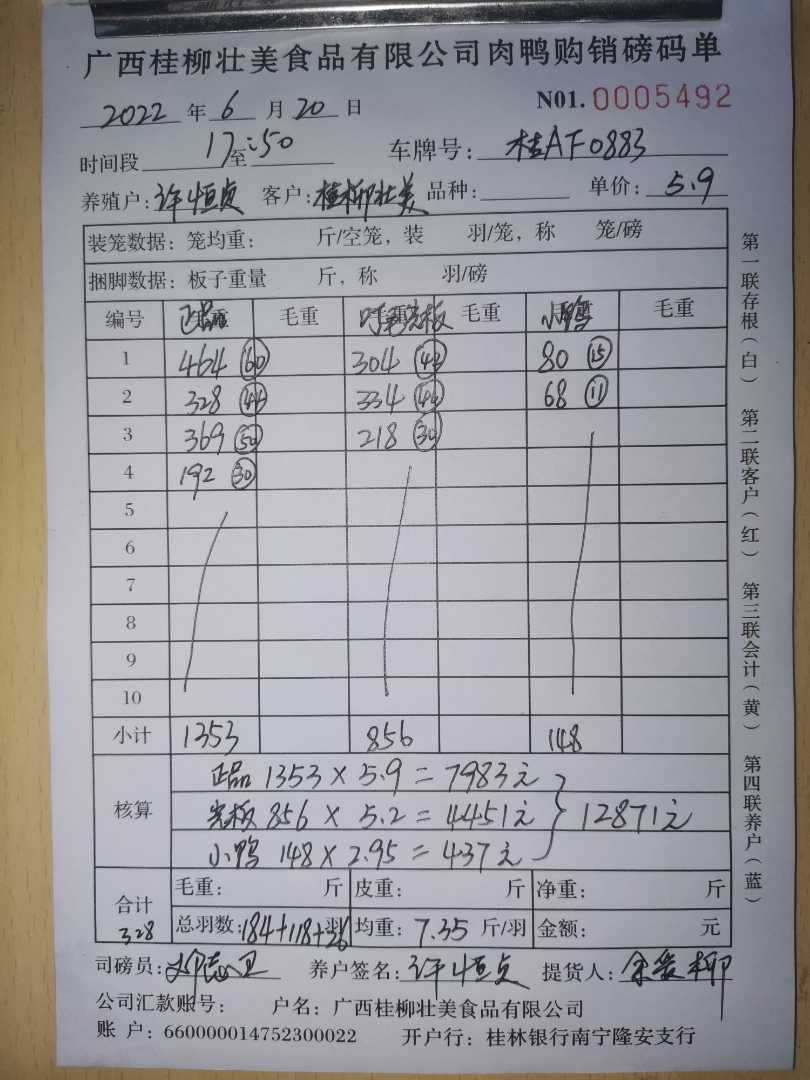 广西桂柳壮美食品有限公司肉鸭购销磅码单
2022 年 6 月 20 日 N01. 0005492
时间段 17:50 至 车牌号: 桂AF0883
养殖户: 许恒贞 客户: 桂柳壮美 品种: 单价: 5.9
装笼数据: 笼均重: 斤/空笼, 装 羽/笼, 称 笼/磅
捆脚数据: 板子重量 斤, 称 羽/磅
编号 正品 毛重 光板 毛重 小鸭 毛重
1 464 60 304 44 80 15
2 328 44 334 44 68 11
3 369 50 218 30
4 192 30
5
6
7
8
9
10
小计 1353 856 148
核算
正品 1353 × 5.9 = 7983元
光板 856 × 5.2 = 4451元 12871元
小鸭 148 × 2.95 = 437元
合计 毛重: 斤 皮重: 斤 净重: 斤
328 总羽数: 184+118+26 羽 均重: 7.35 斤/羽 金额: 元
司磅员: 养户签名: 许恒贞 提货人:
公司汇款账号: 户名: 广西桂柳壮美食品有限公司
账 户: 660000014752300022 开户行: 桂林银行南宁隆安支行
第一联存根(白) 第二联客户(红) 第三联会计(黄) 第四联养户(蓝)